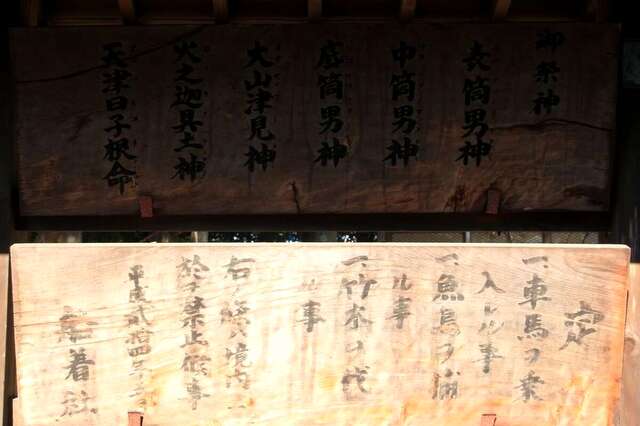 御祭神
表筒男神
中筒男神
底筒男神
大山津見神
火之迦具土神
天津日子根命
定
一、車馬ヲ乗
入ルル事
一、魚鳥ヲ捕
ル事
一、竹木ヲ伐
ル事
右ノ條々境内ニ
於テ禁止候事
平成弐拾四年
着社